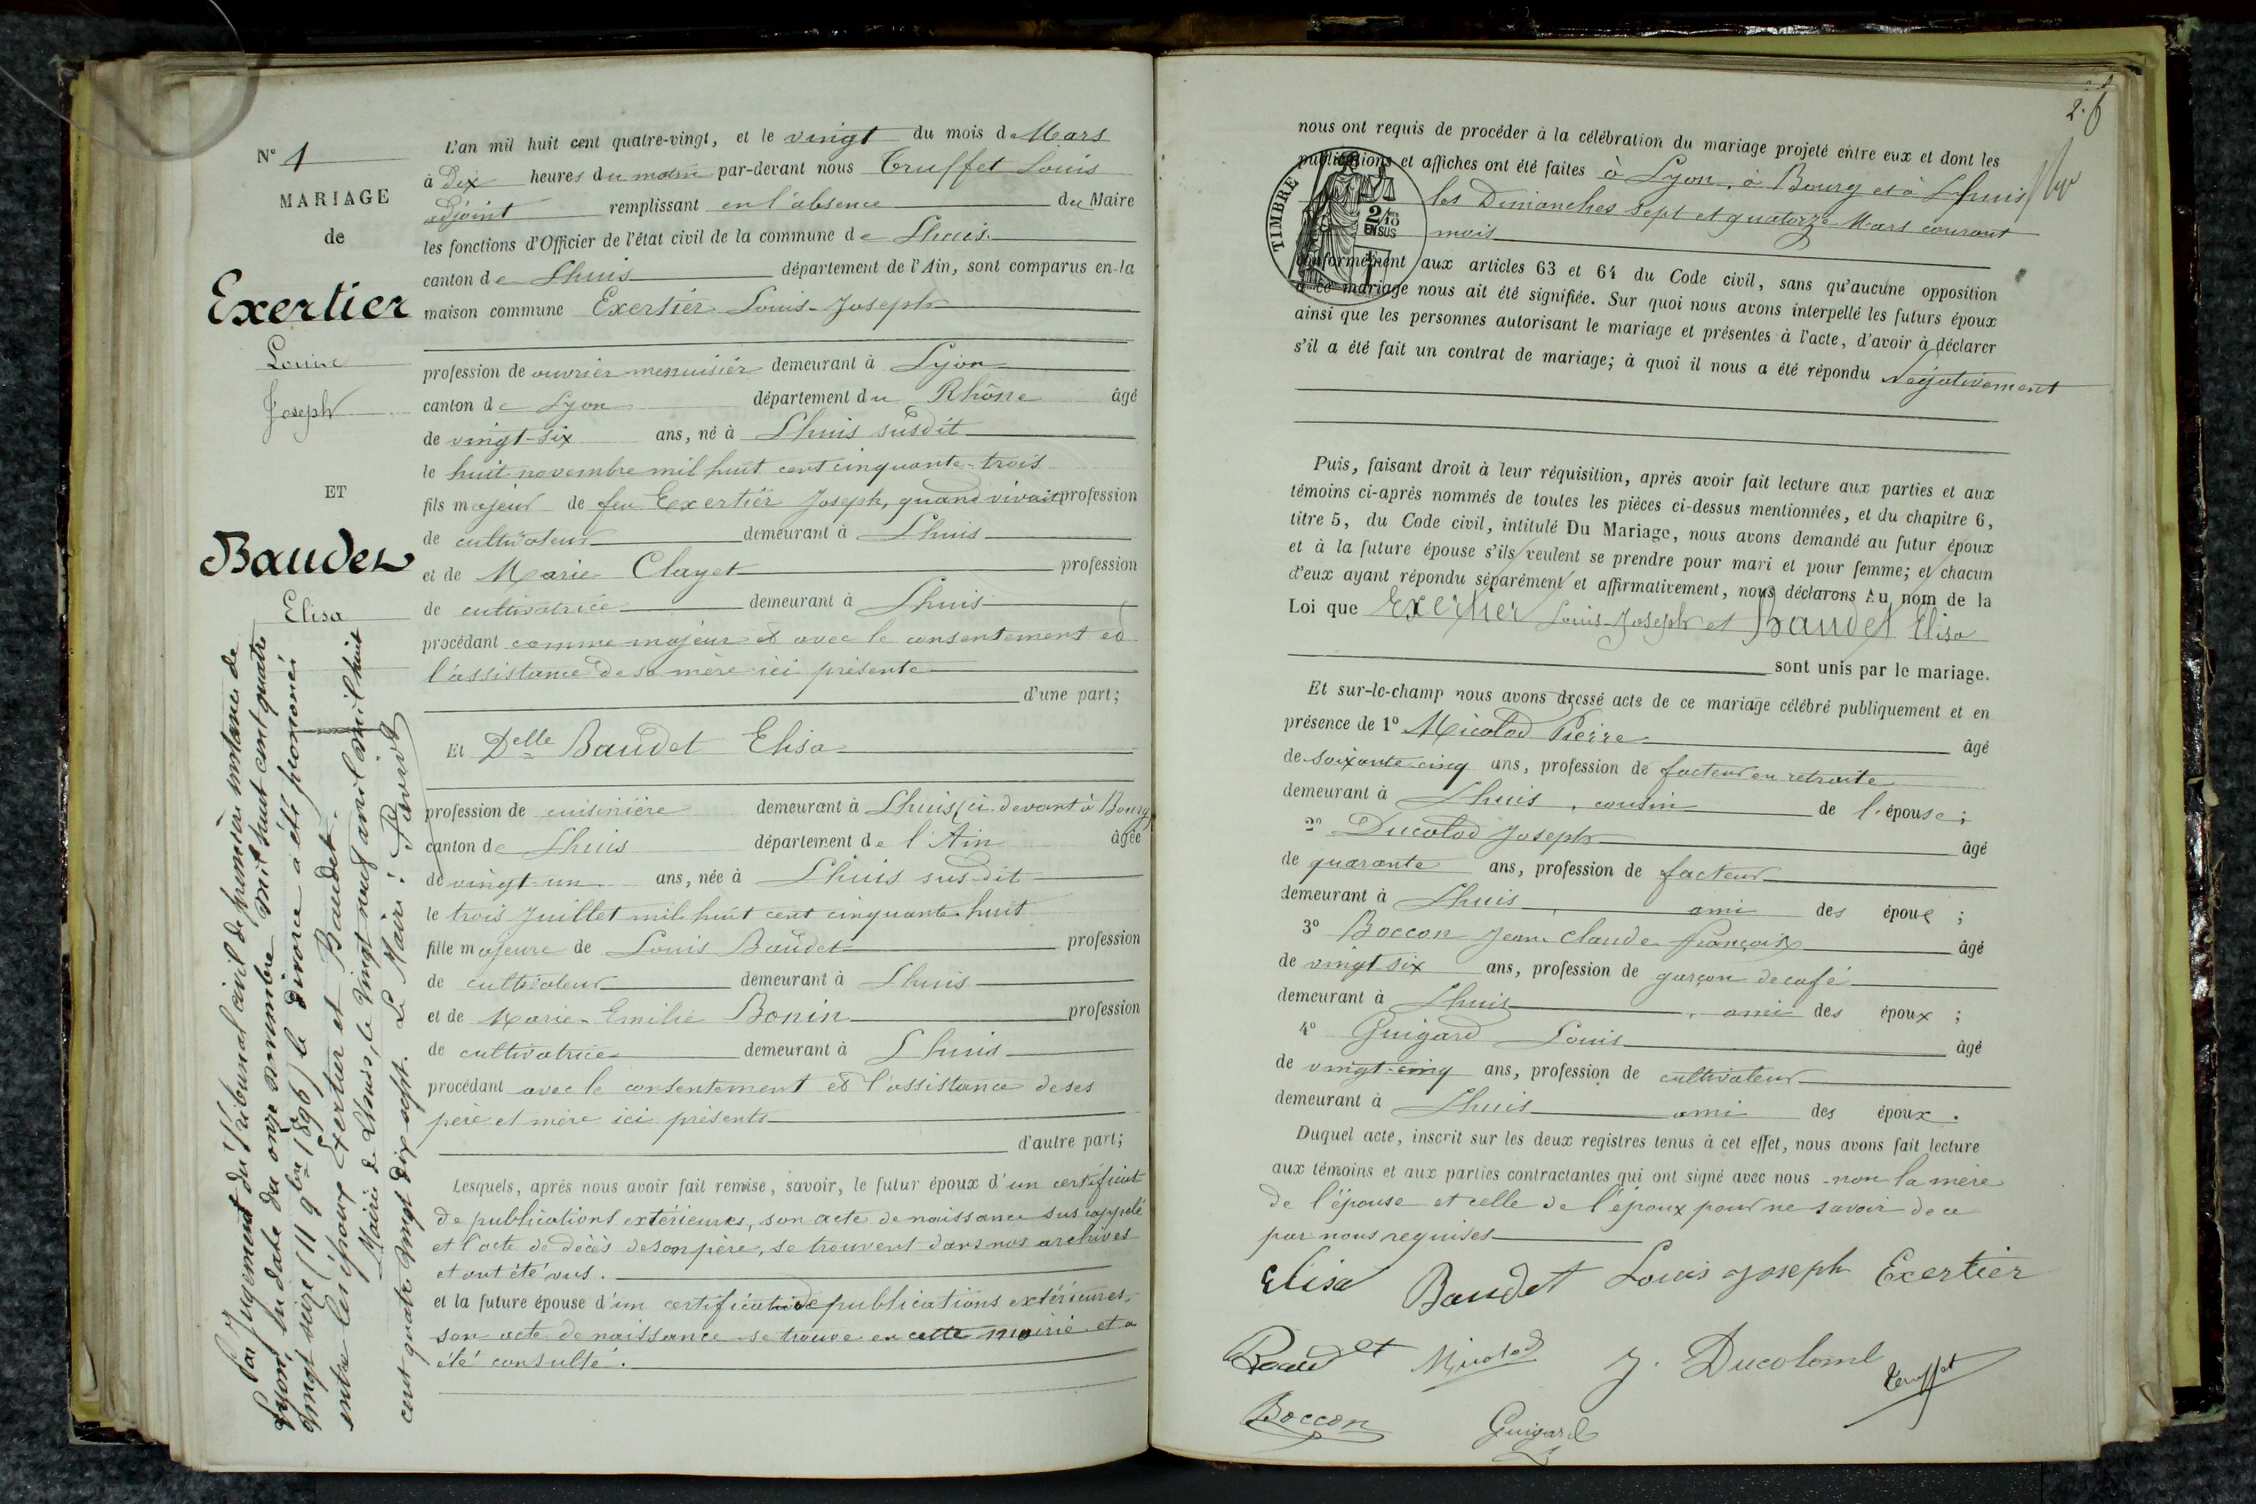 N° 1
MARIAGE
de
Exertier
Louis
Joseph
ET
Baudet
Elisa
Par Jugement du Tribunal civil de première instance de
Lyon, en date du onze novembre mil huit cent quatre
vingt seize (11 9bre 1896) le divorce a été prononcé
entre les époux Exertier et Baudet.
Mairie de Lhuis, le vingt neuf avril mil huit
cent quatre vingt dix sept. Le Maire :
L'an mil huit cent quatre-vingt, et le vingt du mois de Mars
à dix heures du matin par-devant nous Truffet Louis
adjoint remplissant en l'absence du Maire
les fonctions d'Officier de l'état civil de la commune de Lhuis
canton de Lhuis département de l'Ain, sont comparus en la
maison commune Exertier Louis-Joseph
profession de ouvrier menuisier demeurant à Lyon
canton de Lyon département du Rhône âgé
de vingt-six ans, né à Lhuis susdit
le huit novembre mil huit cent cinquante-trois
fils majeur de feu Exertier Joseph, quand vivait profession
de cultivateur demeurant à Lhuis
et de Marie Clayet profession
de cultivatrice demeurant à Lhuis
procédant comme majeur et avec le consentement et
l'assistance de sa mère ici présente
d'une part;
Et Delle Baudet Elisa
profession de cuisinière demeurant à Lhuis (ci-devant à Bourg
canton de Lhuis département de l'Ain âgée
de vingt-un ans, née à Lhuis susdit
le trois Juillet mil huit cent cinquante-huit
fille majeure de Louis Baudet profession
de cultivateur demeurant à Lhuis
et de Marie-Emilie Bonin profession
de cultivatrice demeurant à Lhuis
procédant avec le consentement et l'assistance de ses
père et mère ici présents
d'autre part;
Lesquels, après nous avoir fait remise, savoir, le futur époux d'un certificat
de publications extérieures, son acte de naissance sus rappelé
et l'acte de décès de son père, se trouvent dans nos archives
et ont été vus.
et la future épouse d'un certificat de publications extérieures,
son acte de naissance se trouve en cette mairie et a
été consulté.
2.
nous ont requis de procéder à la célébration du mariage projeté entre eux et dont les
publications et affiches ont été faites à Lyon, à Bourg et à Lhuis
les Dimanches sept et quatorze Mars courant
mois
TIMBRE
2/10
EN SUS
conformément aux articles 63 et 64 du Code civil, sans qu'aucune opposition
à ce mariage nous ait été signifiée. Sur quoi nous avons interpellé les futurs époux
ainsi que les personnes autorisant le mariage et présentes à l'acte, d'avoir à déclarer
s'il a été fait un contrat de mariage; à quoi il nous a été répondu négativement
Puis, faisant droit à leur réquisition, après avoir fait lecture aux parties et aux
témoins ci-après nommés de toutes les pièces ci-dessus mentionnées, et du chapitre 6,
titre 5, du Code civil, intitulé Du Mariage, nous avons demandé au futur époux
et à la future épouse s'ils veulent se prendre pour mari et pour femme; et chacun
d'eux ayant répondu séparément et affirmativement, nous déclarons Au nom de la
Loi que Exertier Louis-Joseph et Baudet Elisa
sont unis par le mariage.
Et sur-le-champ nous avons dressé acte de ce mariage célébré publiquement et en
présence de 1° Micolod Pierre âgé
de soixante-cinq ans, profession de facteur en retraite
demeurant à Lhuis, cousin de l'épouse;
2° Ducolod Joseph âgé
de quarante ans, profession de facteur
demeurant à Lhuis, ami des époux ;
3° Boccon Jean-Claude-François âgé
de vingt-six ans, profession de garçon de café
demeurant à Lhuis, ami des époux ;
4° Guigard Louis âgé
de vingt-cinq ans, profession de cultivateur
demeurant à Lhuis ami des époux.
Duquel acte, inscrit sur les deux registres tenus à cet effet, nous avons fait lecture
aux témoins et aux parties contractantes qui ont signé avec nous - non la mère
de l'épouse et celle de l'époux pour ne savoir de ce
par nous requises
Elisa Baudet Louis Joseph Exertier
Baudet Micolod J. Ducolomb Truffet
Boccon Guigard